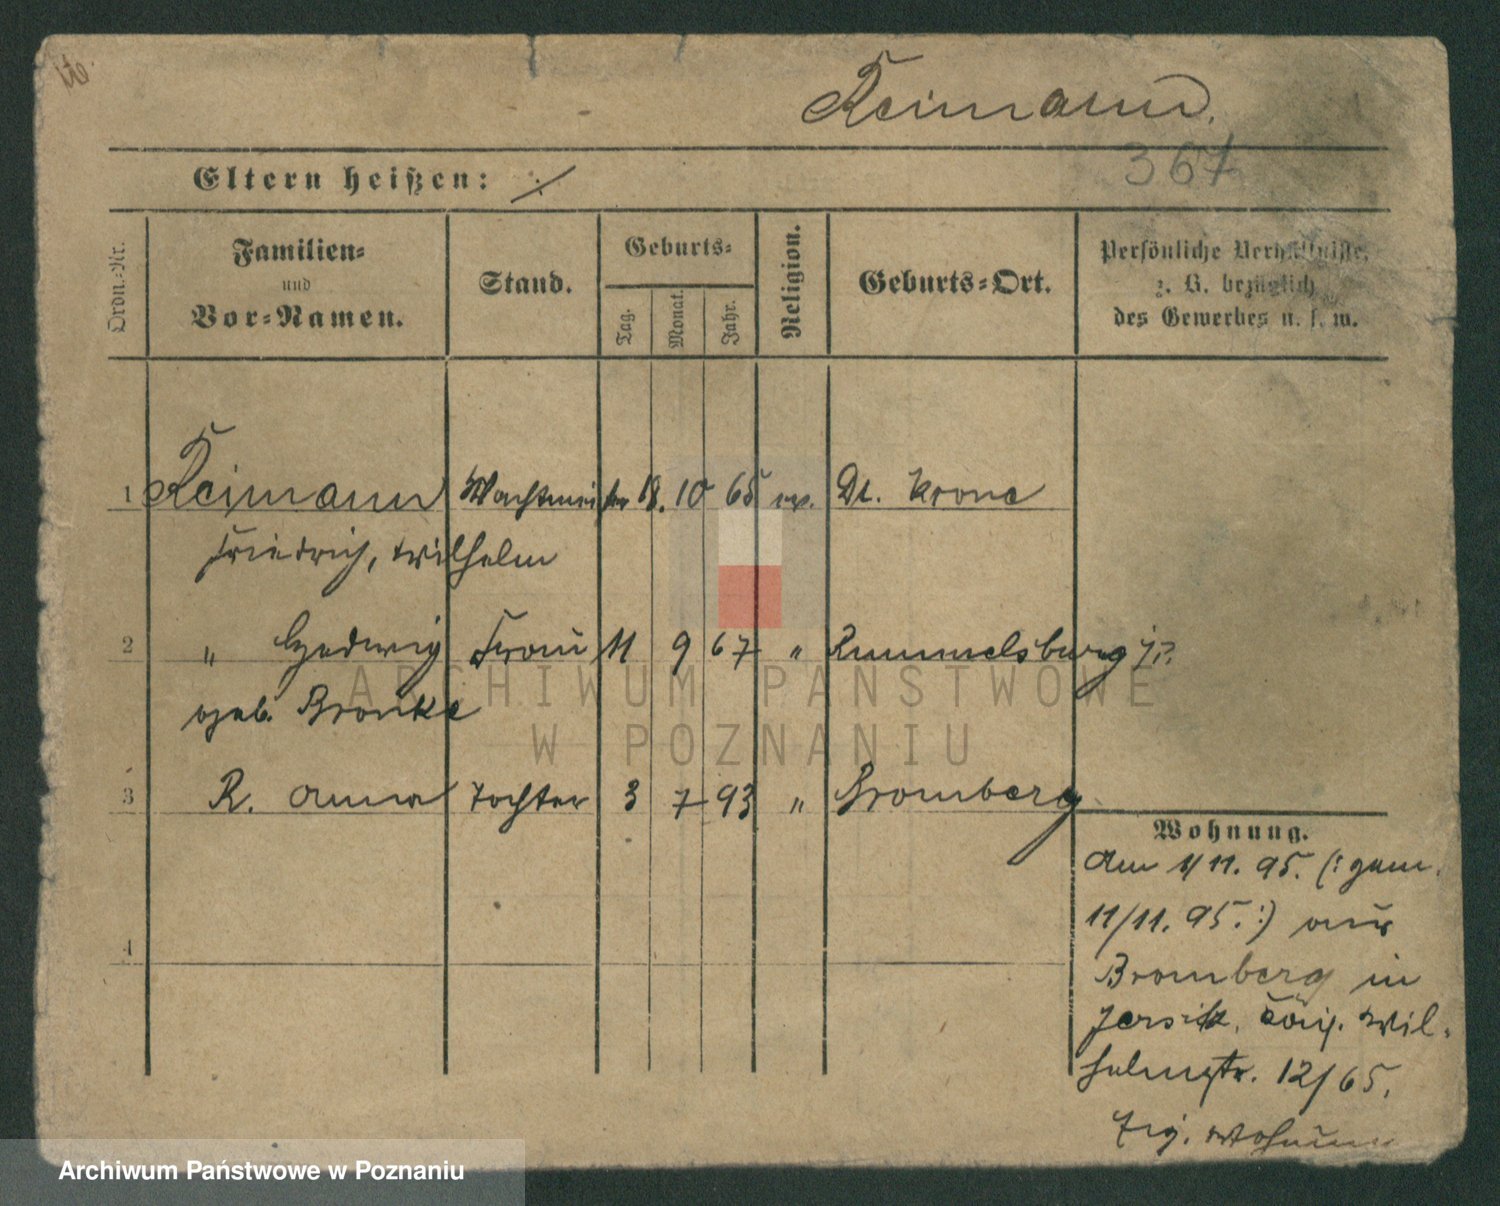 Reimann.
367
Eltern heißen: ./.
Ordn.-Nr.
Familien-
und
Vor-Namen.
Stand.
Geburts-
Tag.
Monat.
Jahr.
Religion.
Geburts-Ort.
Persönliche Verhältnisse,
z. B. bezüglich
des Gewerbes u. s. w.
1 Reimann Wachtmeister 18. 10 65 ev. Dt. Krone
Friedrich, Wilhelm
2 " Hedwig Frau 11 9 67 " Rummelsburg i/P.
geb. Bronke
3 R. Anna Tochter 3 7 93 " Bromberg
4
Wohnung.
Am 1/11. 95. (: gem.
11/11. 95. :) aus
Bromberg in
Jersitz, Wil-
helmstr. 12/65.
ARCHIWUM PAŃSTWOWE
W POZNANIU
Archiwum Państwowe w Poznaniu